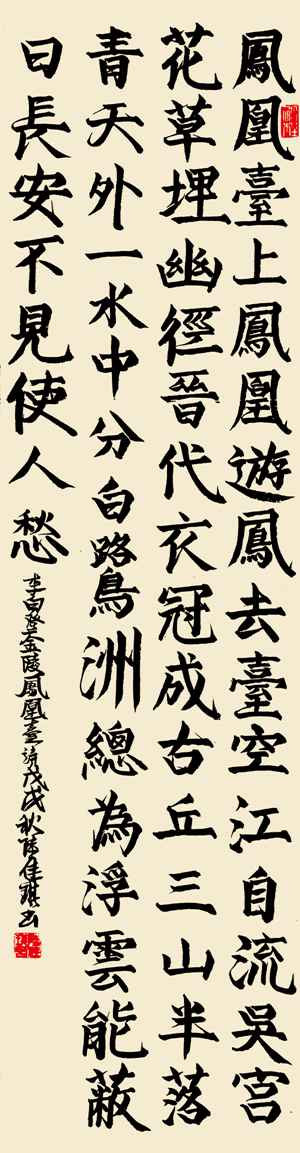 鳳凰臺上鳳凰遊鳳去臺空江自流吳宮
花草埋幽徑晉代衣冠成古丘三山半落
青天外一水中分白鷺洲總為浮雲能蔽
日長安不見使人愁
李白登金陵鳳凰臺詩戊戌秋佳琪书